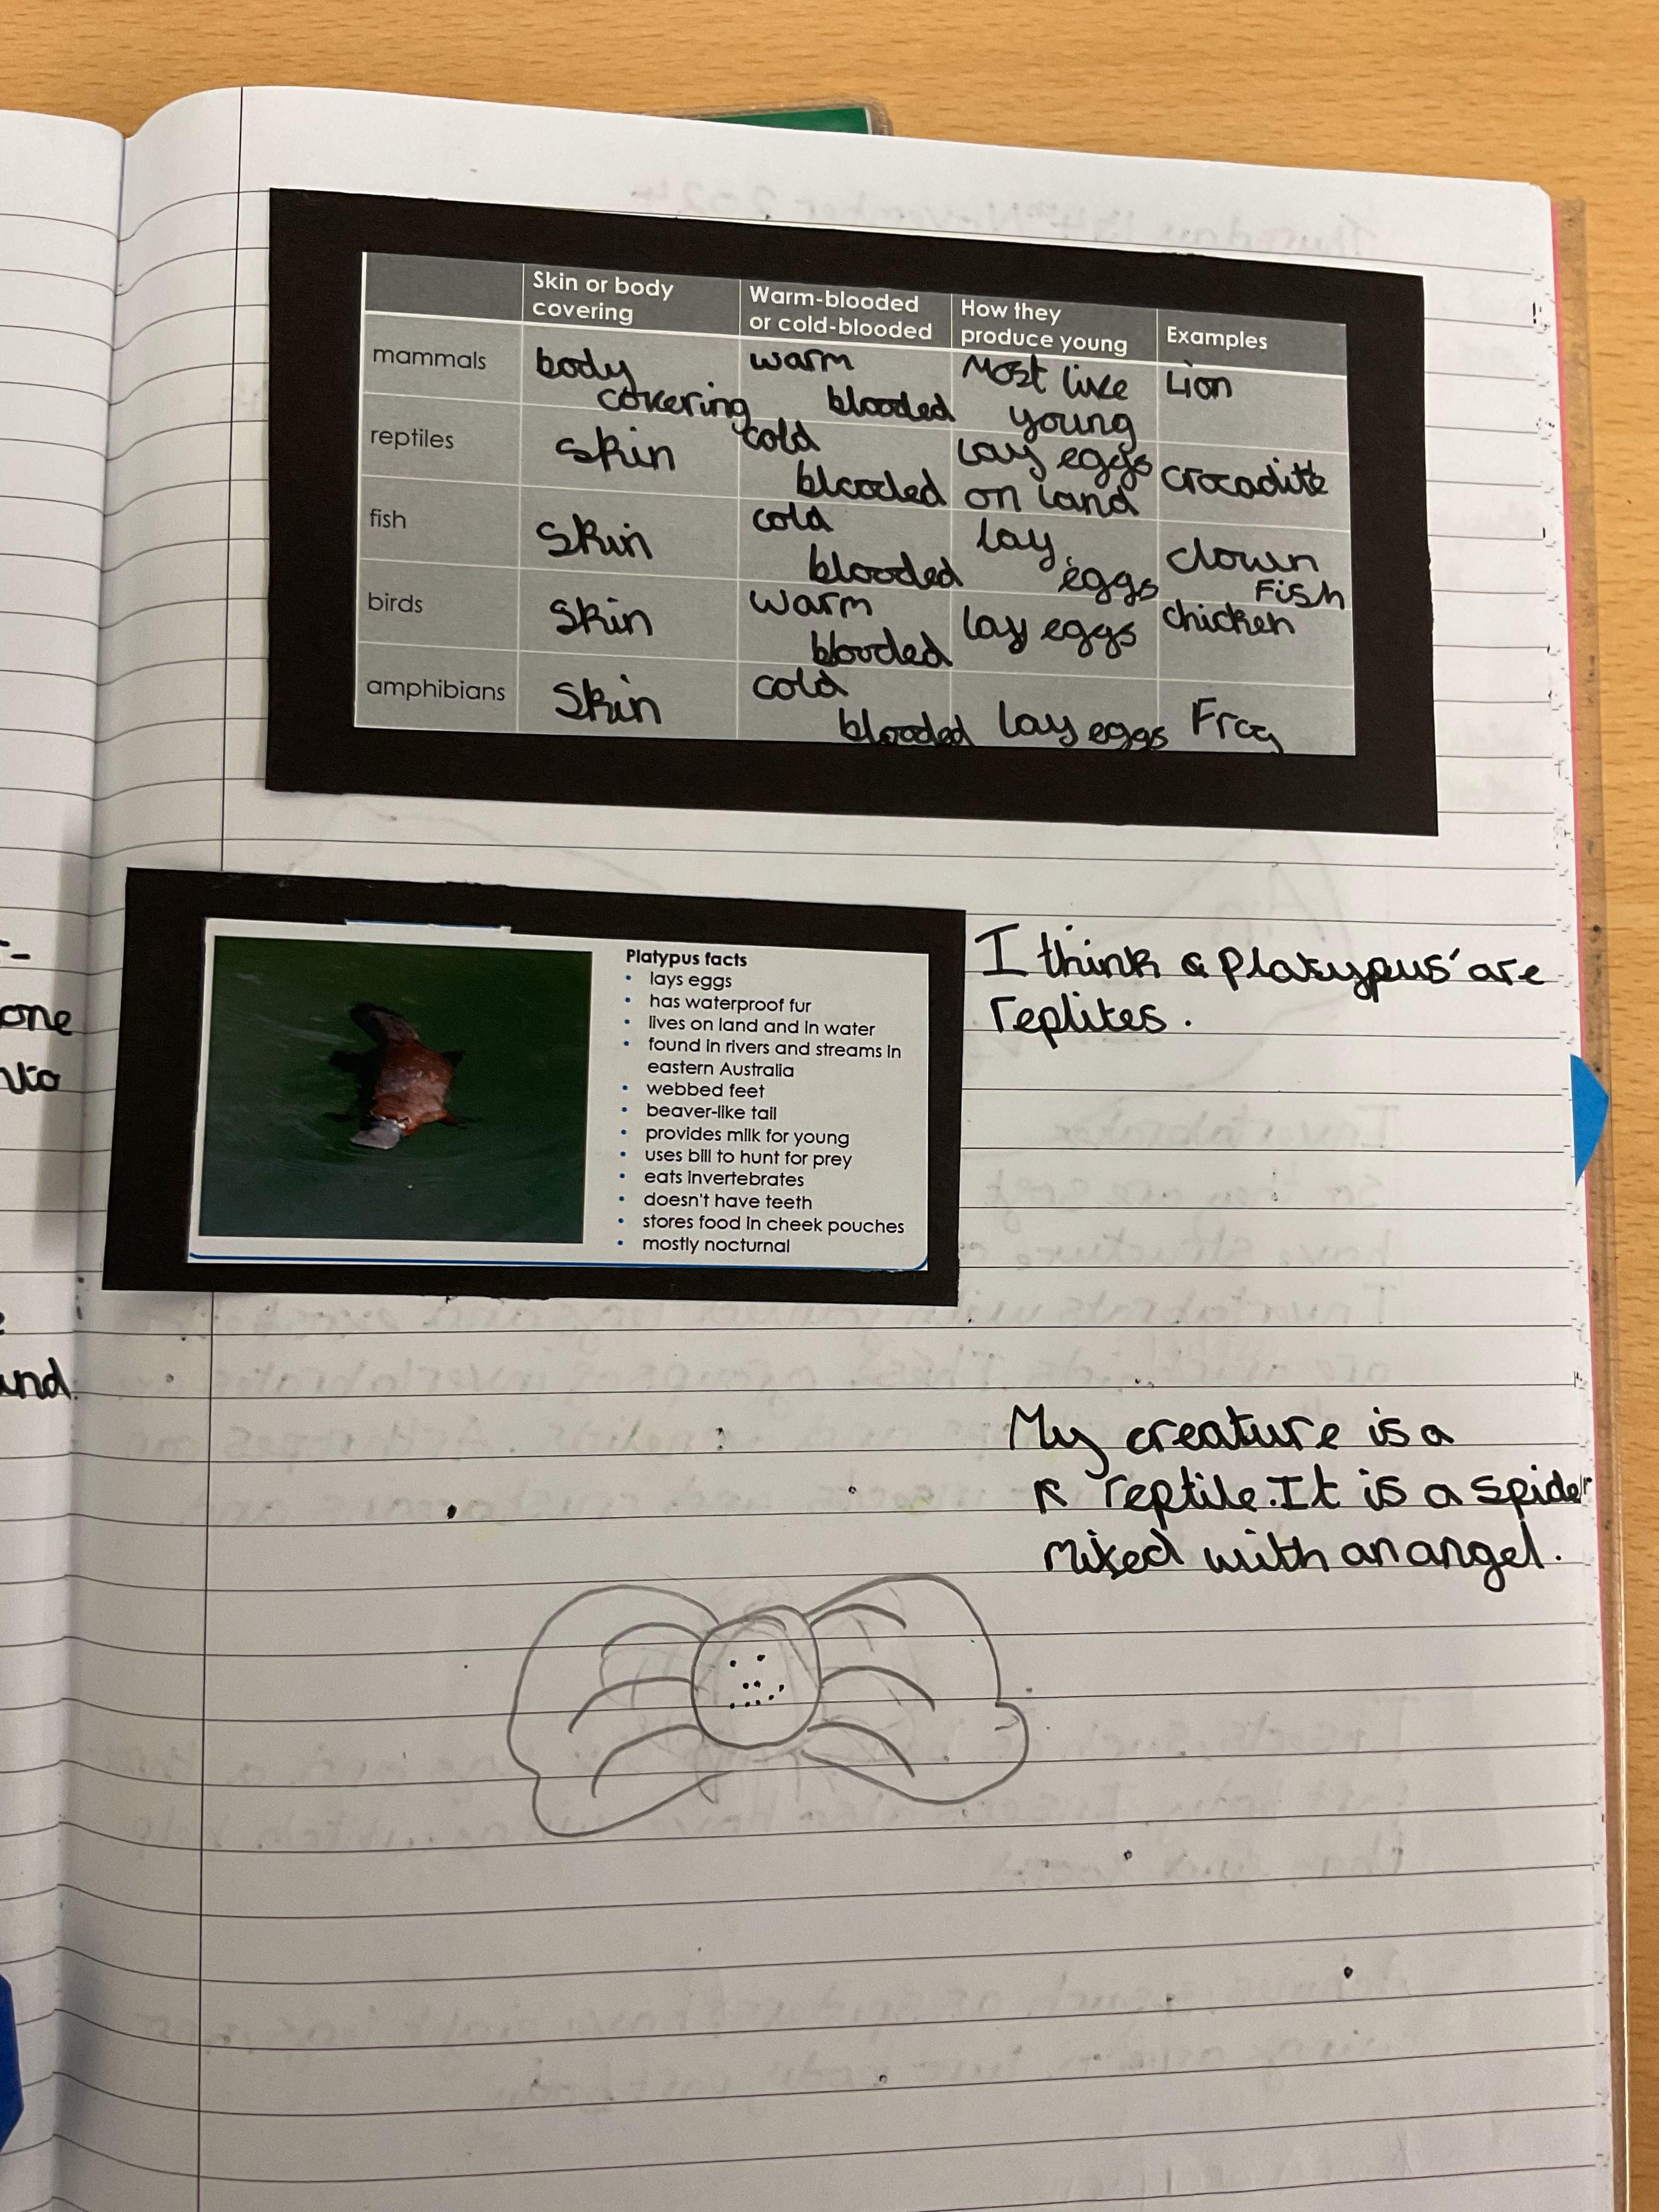 Skin or body covering
Warm-blooded or cold-blooded
How they produce young
Examples
mammals
body
covering
warm
blooded
Most live
young
Lion
reptiles
skin
cold
blooded
lay eggs
on land
crocadile
fish
skin
cold
blooded
lay
eggs
clown
Fish
birds
skin
warm
blooded
lay eggs
chicken
amphibians
skin
cold
blooded
lay eggs
Frog
Platypus facts
• lays eggs
• has waterproof fur
• lives on land and in water
• found in rivers and streams in
eastern Australia
• webbed feet
• beaver-like tail
• provides milk for young
• uses bill to hunt for prey
• eats invertebrates
• doesn't have teeth
• stores food in cheek pouches
• mostly nocturnal
I think a platypus' are
replites.
My creature is a
reptile. It is a spider
mixed with an angel.
one
und